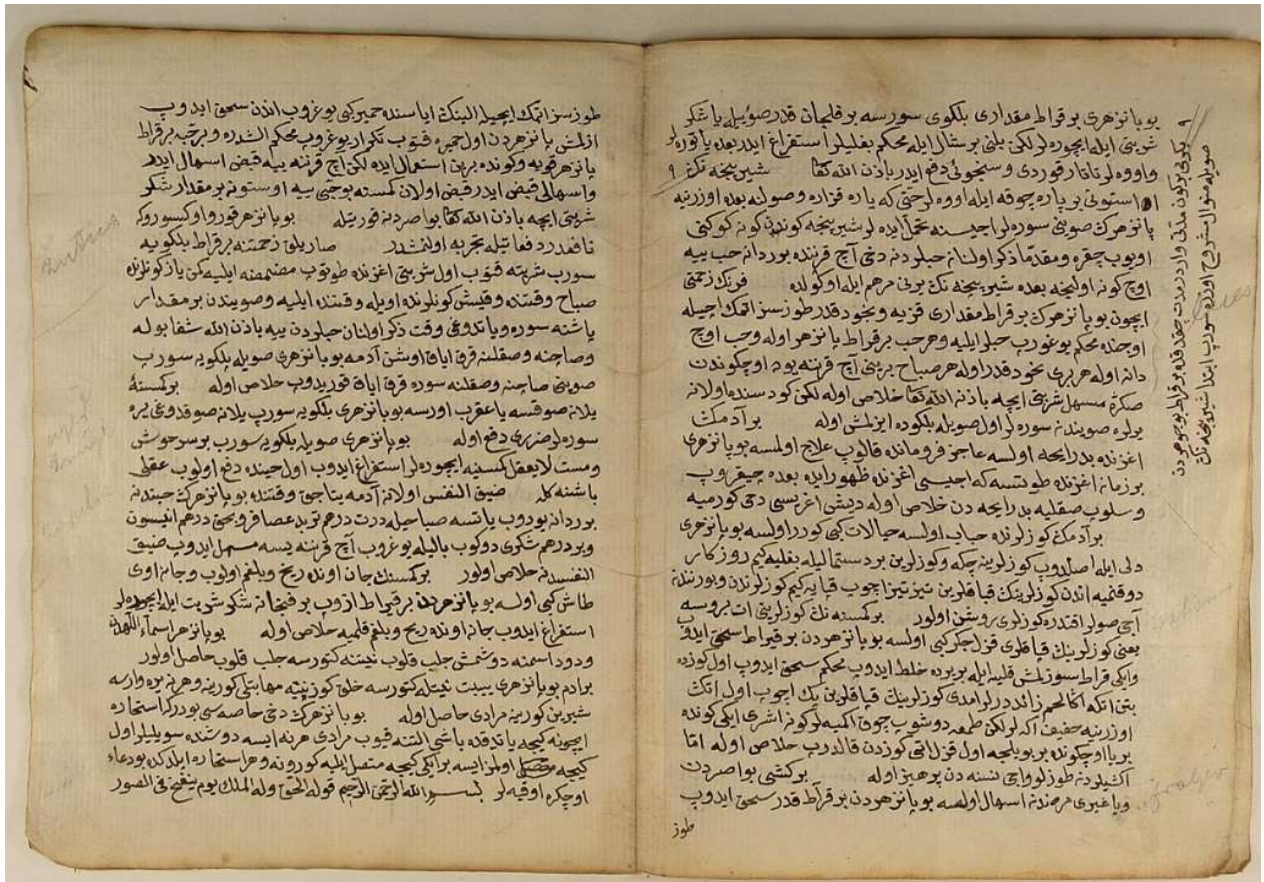 بو پانزهری بر قراط مقداری بلکوی سورسه بر فلجان قدر صویله یا شکر
شربتی ایله ایچوره لر لکن بلنی بر شال ایله محکم بغلیلر استفراغ ایدر بعده یا قوره لر
و اووه لر تاتار قوردی و سنجوئی دفع ایدر باذن الله تعالی شیرینجه نک
استونی بر پاره چوقه ایله اووه لر حتی که یاره قزاره و صولنه بعده اوزرینه
پانزهرک صوینی سوره لر اجیسنه تحمل ایده لر شیرینجه کوندن کونه کوکنی
اویوب چقره و مقدما ذکر اولنان حبلردن دخی آچ قرننه بوردانه حب ییه
اوچ کونه اولیجه بعده شیرینجه نک یرنی مرهم ایله اوکولده فرنک زحمتی
ایچون بو پانزهرک بر قراط مقداری قزیه و نخود قدر طوزسز اتمک ایچیله
اوجنده محکم یوغورب حبلر ایلیه و هر حب بر قراط پانزهر اوله و حب اوچ
دانه اوله هر بری نخود قدر اوله هر صباح برینی آچ قرننه یوده اوچ کوندن
صکره مسهل شربتی ایچه باذن الله تعالی خلاص اوله لکن کودسنده اولان
یرلره صویندن سوره لر اول صویله بلکوده ازلمش اوله بر آدمک
اغزنده بد رایحه اولسه عاجز فرومانده قالوب علاج اولمسه بو پانزهری
بر زمان اغزنده طوتسه که اجیسی اغزنده ظهور ایده بعده چیقروب
و سلوب صقلیه بد رایحه دن خلاص اوله دیشی اغریسی دخی کورمیه
بر آدمک کوزلرنده حباب اولسه خیالات کبی کورر اولسه بو پانزهری
دلی ایله اصلدوب کوزلرینه چکه و کوزلرین بر دستمالیله بغلیه کیم روزکار
دوقنمیه اندن کوزلرینک قپاقلرین تیز تیز اچوب قپایه کیم کوزلرندن و بورنندن
آجی صولر اقتدره کوزلری روشن اولور بر کمسنه نک کوزلرینی ات بروسه
یعنی کوزلرینک قپاقلری قزل جکر کبی اولسه بو پانزهردن بر قیراط سحق ایدوب
وایکی قراط سوزلمش قلیه ایله بریرده خلط ایدوب محکم سحق ایدوب اول کوزده
بتن اتکه اکا لحم زائد درلر آمدی کوزلرینک قپاقلرین پک اچوب اول اتک
اوزرینه خفیف اکه لر لکن طمعه دوشوب چوق اکمیه لر کونه اشری ایکی کونده
بر یا اوچ کونده بر بویلجه اول قزل اتی کوزدن قالدرب خلاص اوله اما
اکشیلردن طوزلو و اجی نسنه دن پرهیز اوله بر کشی بواصردن
ویا غیری مرضدن اسهال اولسه بو پانزهردن بر قراط قدر سحق ایدوب
طوز
صویله منوال مشروح اوزره سوروب ابتدا شیرینجه نک
طوزسز اتمک ایچیله الینک ایاسنده خمیر کبی یوغروب اندن سحق ایدوب
ازلمش پانزهردن اول خمیره قتوب تکرار یوغروب محکم الشدره و بر حبه بر قراط
پانزهر قویه و کونده برین استعمال ایده لکن اچ قرننه ییه قبض اسهال ایدر
و اسهالی قبض ایدر قبض اولان کمسنه بو حبی ییه اوستونه بر مقدار شکر
شربتی ایچه باذن الله تعالی بواصردن قورتیله بو پانزهر قورو اوکسوروکه
نافعدر دفعاتیله تجربه اولنمشدر صاریلق زحمتنه بر قراط بلکویه
سورب شربته قتوب اول شربتی اغزنده طوتوب مضمضه ایلیه کن یاز کونلرنده
صباح وقتنده و قیش کونلرنده اویله وقتنده ایلیه و صویندن بر مقدار
یاشنه سوره و یاتدوغی وقت ذکر اولنان حبلردن ییه باذن الله شفا بوله
و صاچنه و صقلنه قرق ایاق اوشن آدمه بو پانزهری صویله بلکویه سورب
صوینی صاچنه و صقلنه سوره قرق ایاق قوریدوب خلاص اوله بر کمسنه
ییلان صوقسه یا عقرب اورسه بو پانزهری بلکویه سورپ ییلان صوقدوغی یره
سوره لر ضرری دفع اوله بو پانزهری صویله بلکویه سورب بر سرخوش
و مست لا یعقل کمسنیه ایچوره لر استفراغ ایدوب اول حینده دفع اولوب عقلی
باشنه کله ضیق النفس اولان آدمه یتاجق وقتنده بو پانزهرک حبندن
بر دانه یودوب یاتسه صباحیله درت درهم تربد عصافر و یخی درهم انیسون
و بر درهم شکری دوکوب بالیله یوغروب آچ قرننه یسه مسهل ایدوب ضیق
النفسدن خلاص اولور بر کمسنک جان اونده ریح و بلغم اولوب و جان اوی
طاش کبی اولسه بو پانزهردن بر قیراط ازوب بر فنجان شکر شربت ایله ایچوره لر
استفراغ ایدوب جان اونده ریح و بلغم قلمیه خلاص اوله بو پانزهر اسماء اللهدن
ودود اسمنه دوشمش جلب قلوب نیتنه کتورسه جلب قلوب حاصل اولور
بر ادم بو پانزهری هیبت نیتیله کتورسه خلق کوزینه مهابتلی کورینه و هر نه یره وارسه
شیرین کورینه مرادی حاصل اوله بو پانزهرک دخی خاصه سی بودر که استخاره
ایچون کیجه یاتدقده باشی التنه قیوب مرادی هر نه ایسه دوشنده سویلیلر اول
کیجه اولمز ایسه بر ایکی کیجه متصل ایلیه کورونه و هر استخاره ایلدکده بو دعاء
اوچکره اوقیه لر بسم الله الرحمن الرحیم قوله الحق وله الملك یوم ینفخ فی الصور